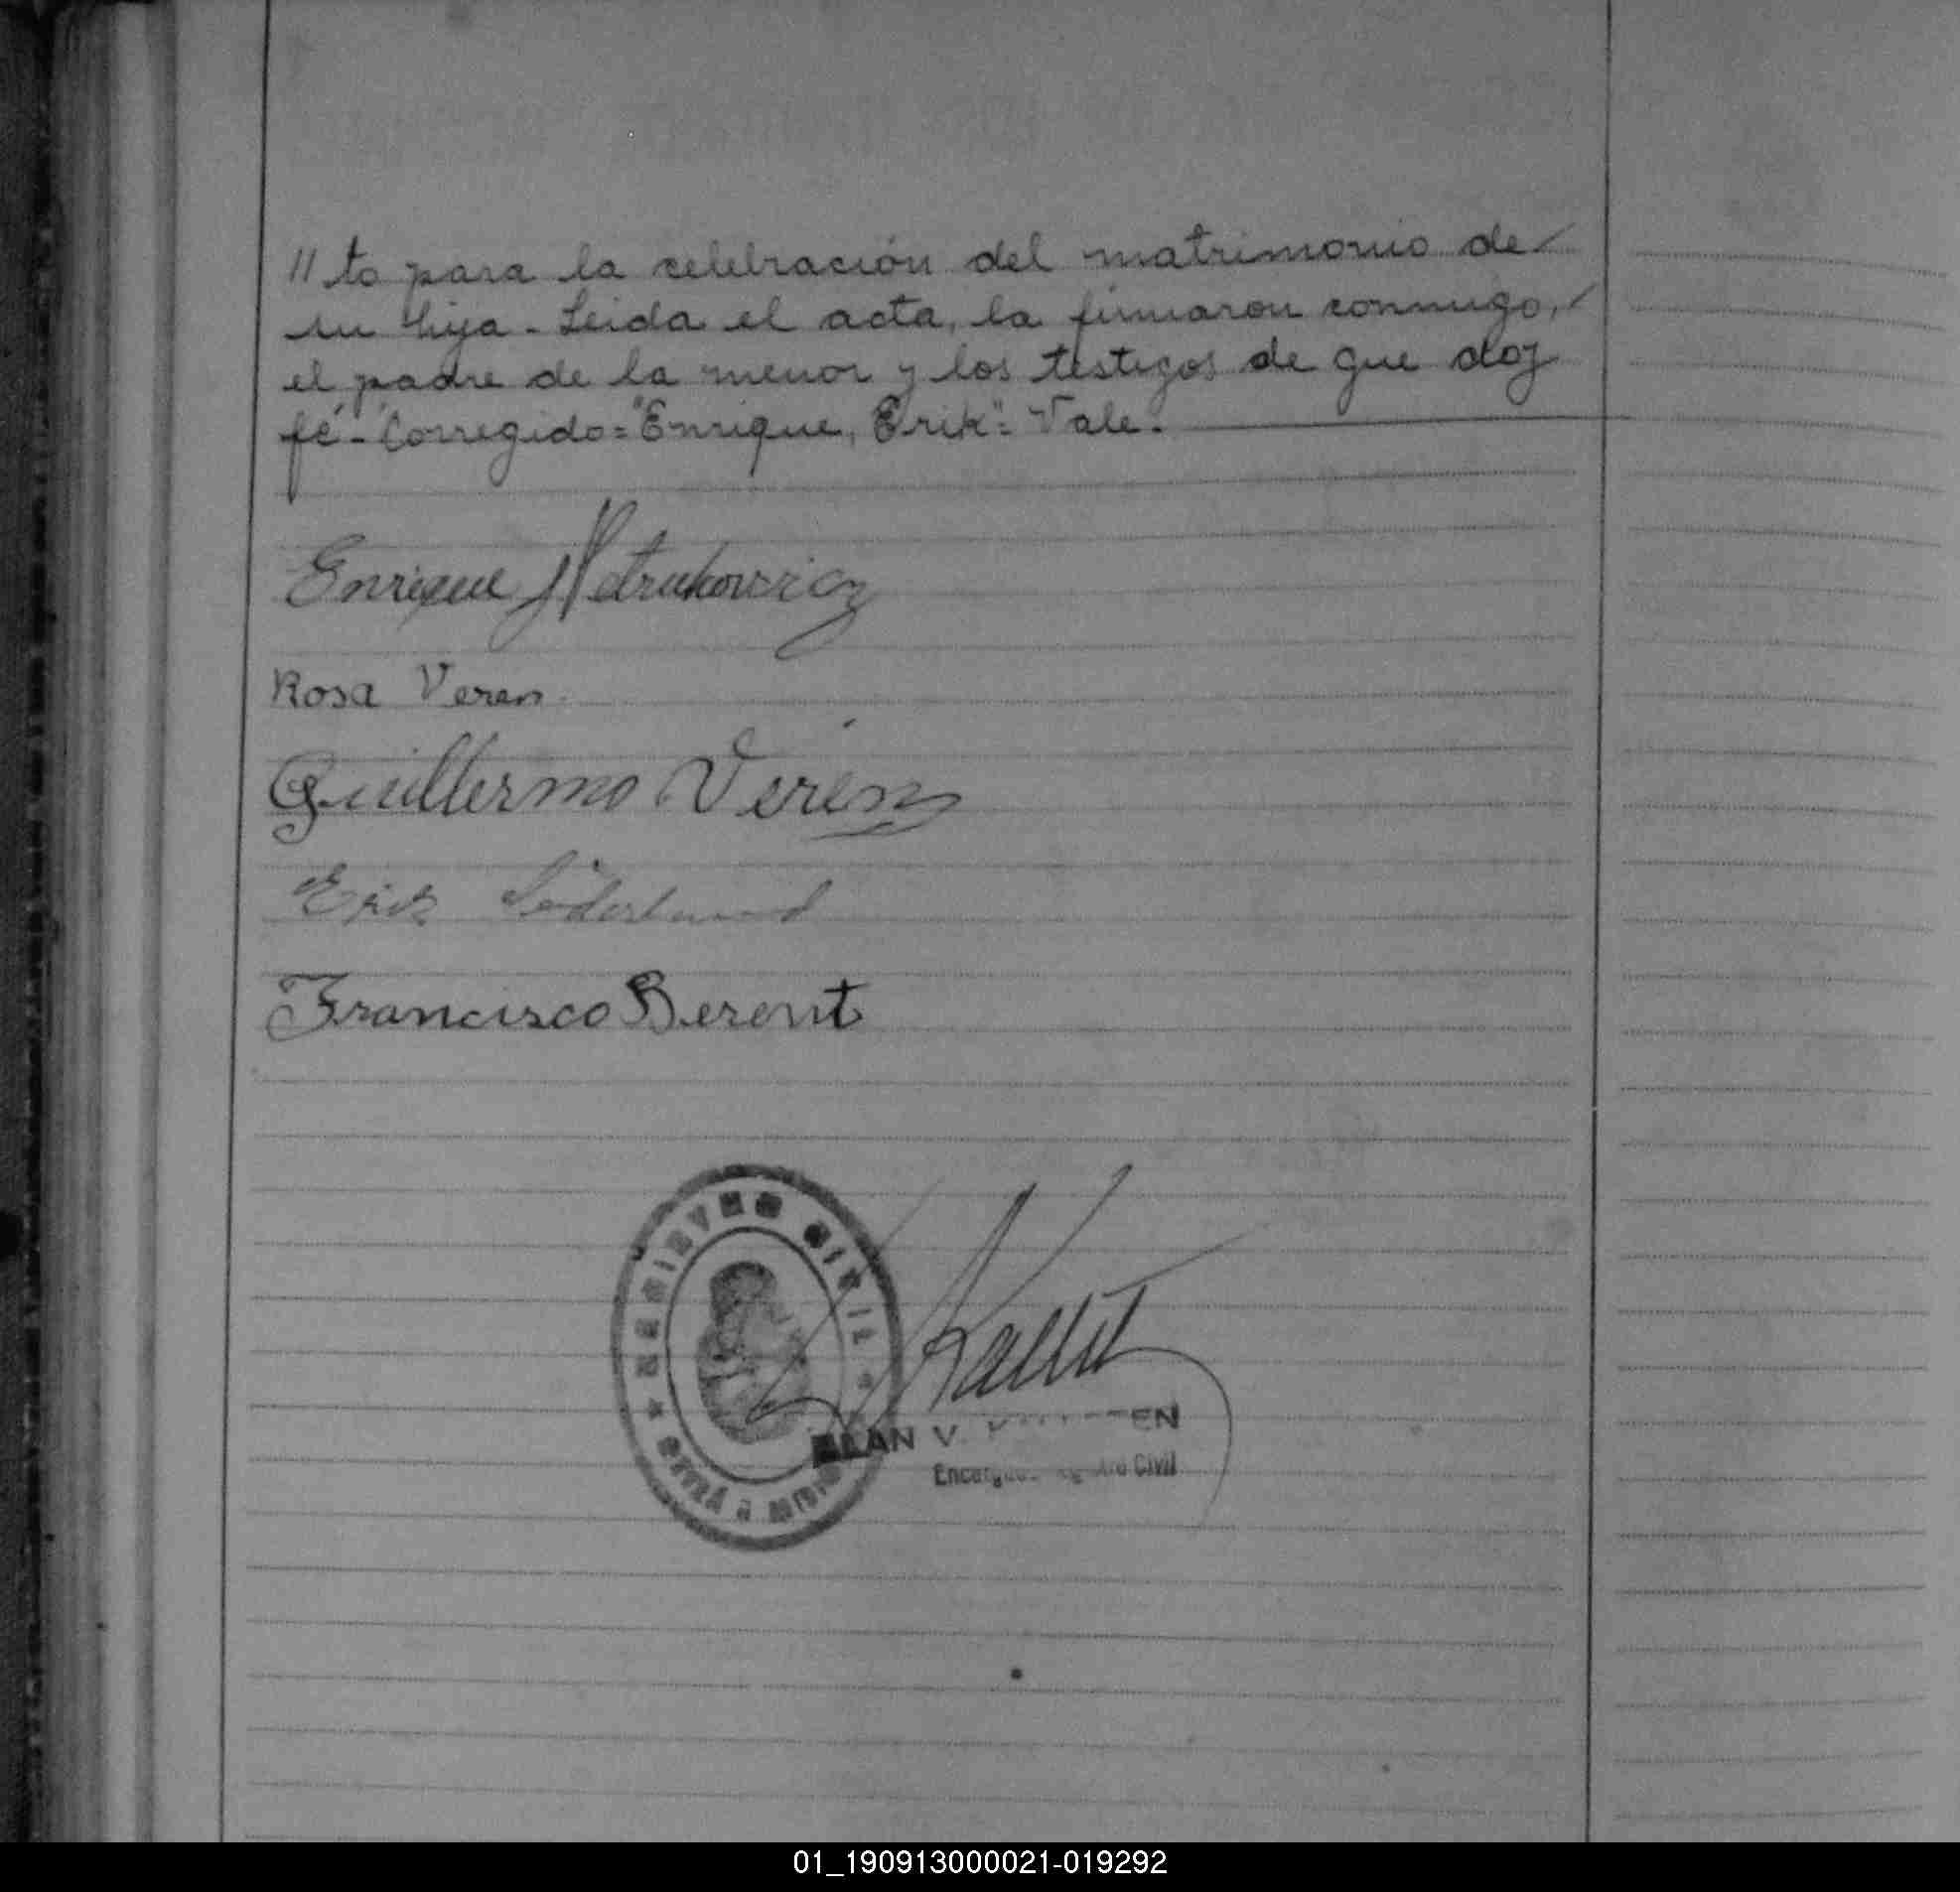 // to para la celebración del matrimonio de
su hija - Leida el acta, la firmaron conmigo,
el padre de la menor y los testigos de que doy
fé - Corregido = "Enrique, Erik" = Vale.
Enrique Petrukowicz
Rosa Veren
Guillermo Verén
Erik Söderlund
Francisco Berent
CIVIL
V. EN
Civil
01_190913000021-019292